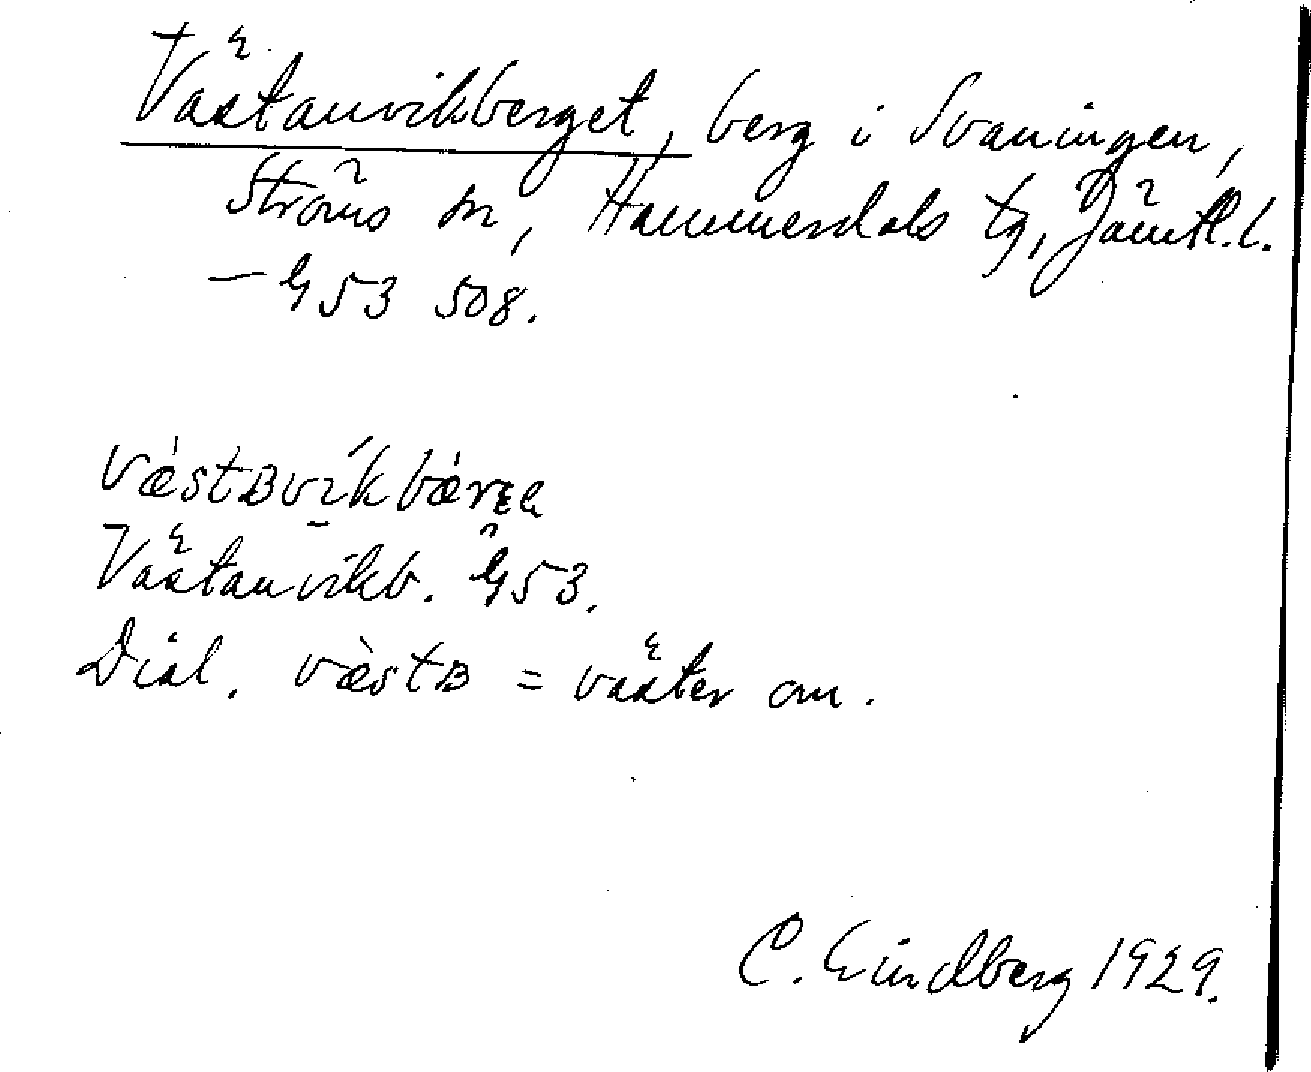 Västanvikberget, berg i Svaningen,
Ströms sn, Hammerdals tg, Jämtl. l.
— G53 508.
Västanvikb. G53.
Dial. væ̀stʙ = väster om.
C. Lindberg 1929.